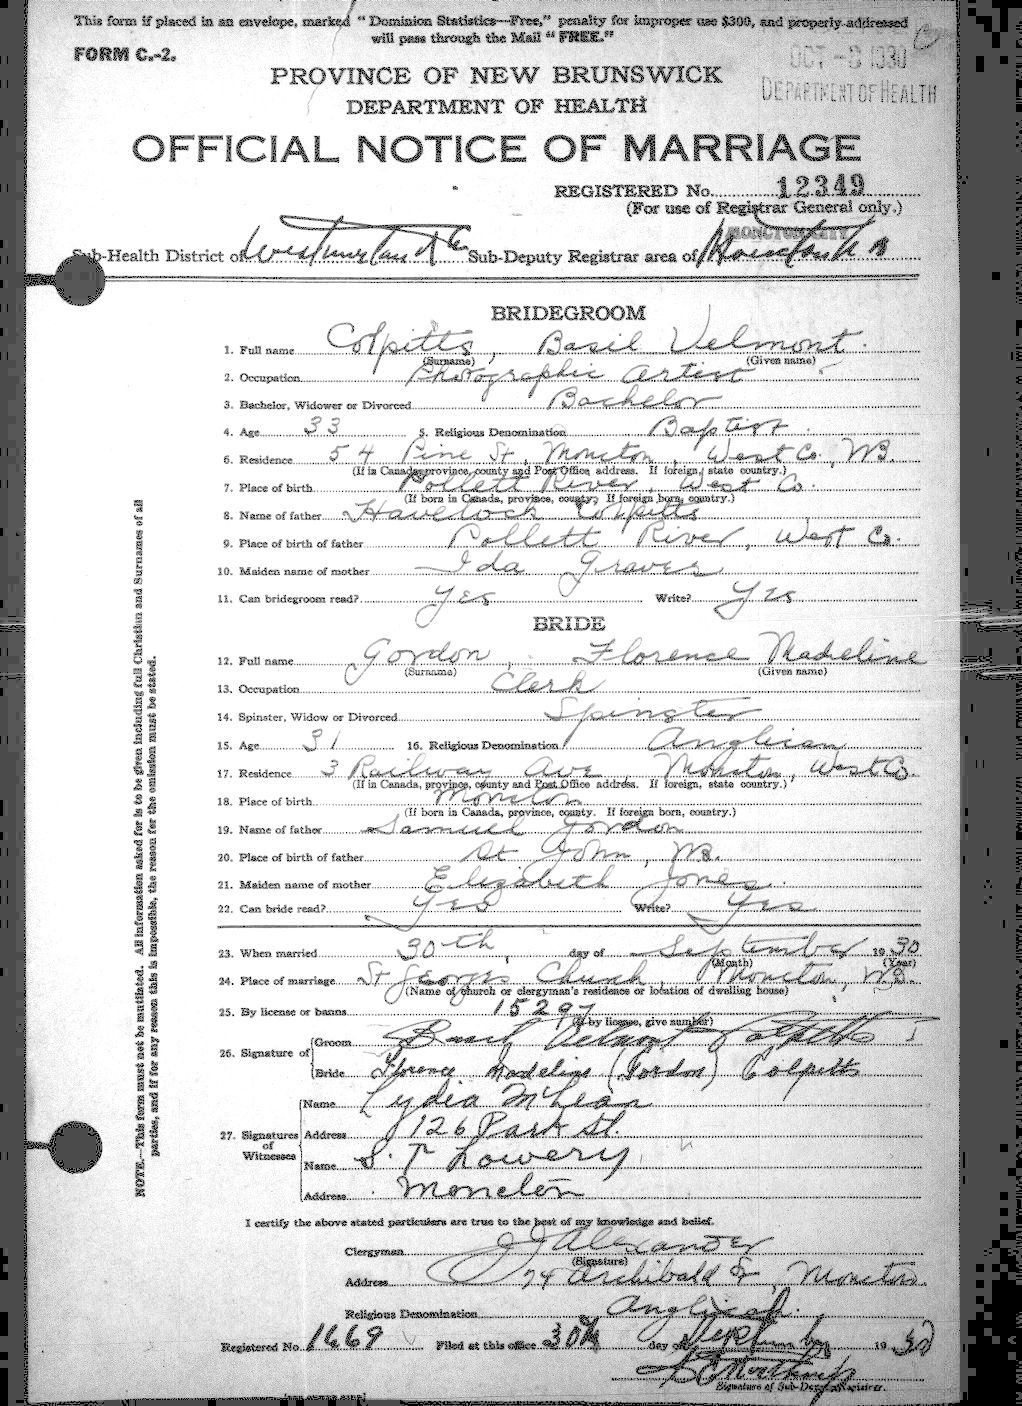 This form if placed in an envelope, marked "Dominion Statistics—Free," penalty for improper use $300, and properly addressed
will pass through the Mail "FREE."
FORM C.-2.
OCT -3 1930
DEPARTMENT OF HEALTH
PROVINCE OF NEW BRUNSWICK
DEPARTMENT OF HEALTH
OFFICIAL NOTICE OF MARRIAGE
REGISTERED No. 12349
(For use of Registrar General only.)
MONCTON CITY
Sub-Health District of Westmorland Co Sub-Deputy Registrar area of Moncton
BRIDEGROOM
1. Full name Colpitts, Basil Velmont
(Surname) (Given name)
2. Occupation Photographic Artist
3. Bachelor, Widower or Divorced Bachelor
4. Age 33 5. Religious Denomination Baptist
6. Residence 54 Pine St, Moncton, West Co, NB.
(If in Canada, province, county and Post Office address. If foreign, state country.)
7. Place of birth Pollett River, West Co.
(If born in Canada, province, county. If foreign born, country.)
8. Name of father Havelock Colpitts
9. Place of birth of father Pollett River, West Co.
10. Maiden name of mother Ida Graves
11. Can bridegroom read? Yes Write? Yes
BRIDE
12. Full name Gordon, Florence Madeline
(Surname) (Given name)
13. Occupation Clerk
14. Spinster, Widow or Divorced Spinster
15. Age 31 16. Religious Denomination Anglican
17. Residence 3 Railway Ave, Moncton, West Co.
(If in Canada, province, county and Post Office address. If foreign, state country.)
18. Place of birth Moncton
(If born in Canada, province, county. If foreign born, country.)
19. Name of father Samuel Gordon
20. Place of birth of father St John, NB.
21. Maiden name of mother Elizabeth Jones
22. Can bride read? Yes Write? Yes
23. When married 30th, day of September 1930
(Month) (Year)
24. Place of marriage St Georges Church, Moncton, NB.
(Name of church or clergyman's residence or location of dwelling house)
25. By license or banns 15297
(If by license, give number)
26. Signature of Groom Basil Velmont Colpitts
Bride Florence Madeline (Gordon) Colpitts
27. Signatures of Witnesses
Name Lydia McLean
Address 126 Park St.
Name S. T Lowery
Address Moncton
I certify the above stated particulars are true to the best of my knowledge and belief.
Clergyman J J Alexander
(Signature)
Address 74 Archibald St, Moncton
Religious Denomination Anglican.
Registered No. 1669 Filed at this office 30th day of September 1930
Signature of Sub-Deputy Registrar.
NOTE.—This form must not be mutilated. All information asked for is to be given including full Christian and Surnames of all
parties, and if for any reason this is impossible, the reason for the omission must be stated.